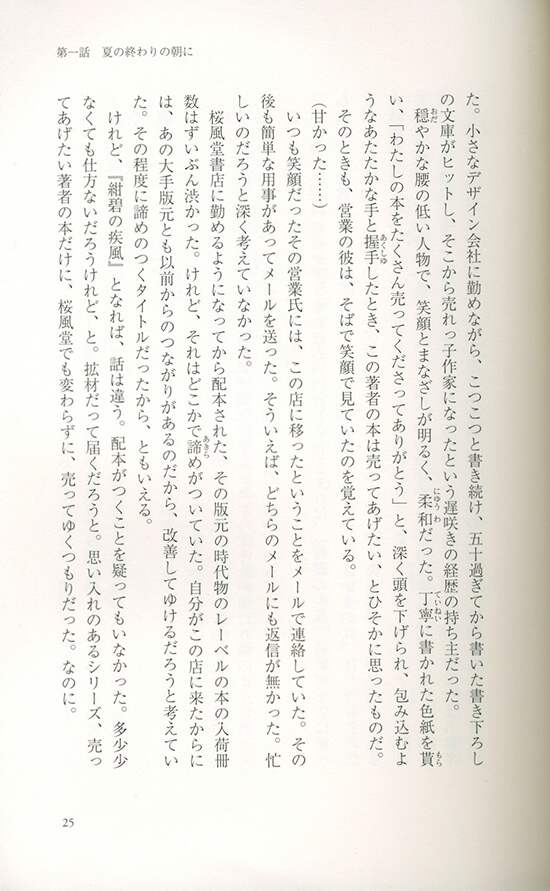 第一話　夏の終わりの朝に
た。小さなデザイン会社に勤めながら、こつこつと書き続け、五十過ぎてから書いた書き下ろし
の文庫がヒットし、そこから売れっ子作家になったという遅咲きの経歴の持ち主だった。
穏やかな腰の低い人物で、笑顔とまなざしが明るく、柔和だった。丁寧に書かれた色紙を貰
い、「わたしの本をたくさん売ってくださってありがとう」と、深く頭を下げられ、包み込むよ
うなあたたかな手と握手したとき、この著者の本は売ってあげたい、とひそかに思ったものだ。
そのときも、営業の彼は、そばで笑顔で見ていたのを覚えている。
（甘かった……）
いつも笑顔だったその営業氏には、この店に移ったということをメールで連絡していた。その
後も簡単な用事があってメールを送った。そういえば、どちらのメールにも返信が無かった。忙
しいのだろうと深く考えていなかった。
桜風堂書店に勤めるようになってから配本された、その版元の時代物のレーベルの本の入荷冊
数はずいぶん渋かった。けれど、それはどこかで諦めがついていた。自分がこの店に来たからに
は、あの大手版元とも以前からのつながりがあるのだから、改善してゆけるだろうと考えてい
た。その程度に諦めのつくタイトルだったから、ともいえる。
けれど、『紺碧の疾風』となれば、話は違う。配本がつくことを疑ってもいなかった。多少少
なくても仕方ないだろうけれど、と。拡材だって届くだろうと。思い入れのあるシリーズ、売っ
てあげたい著者の本だけに、桜風堂でも変わらずに、売ってゆくつもりだった。なのに。
25